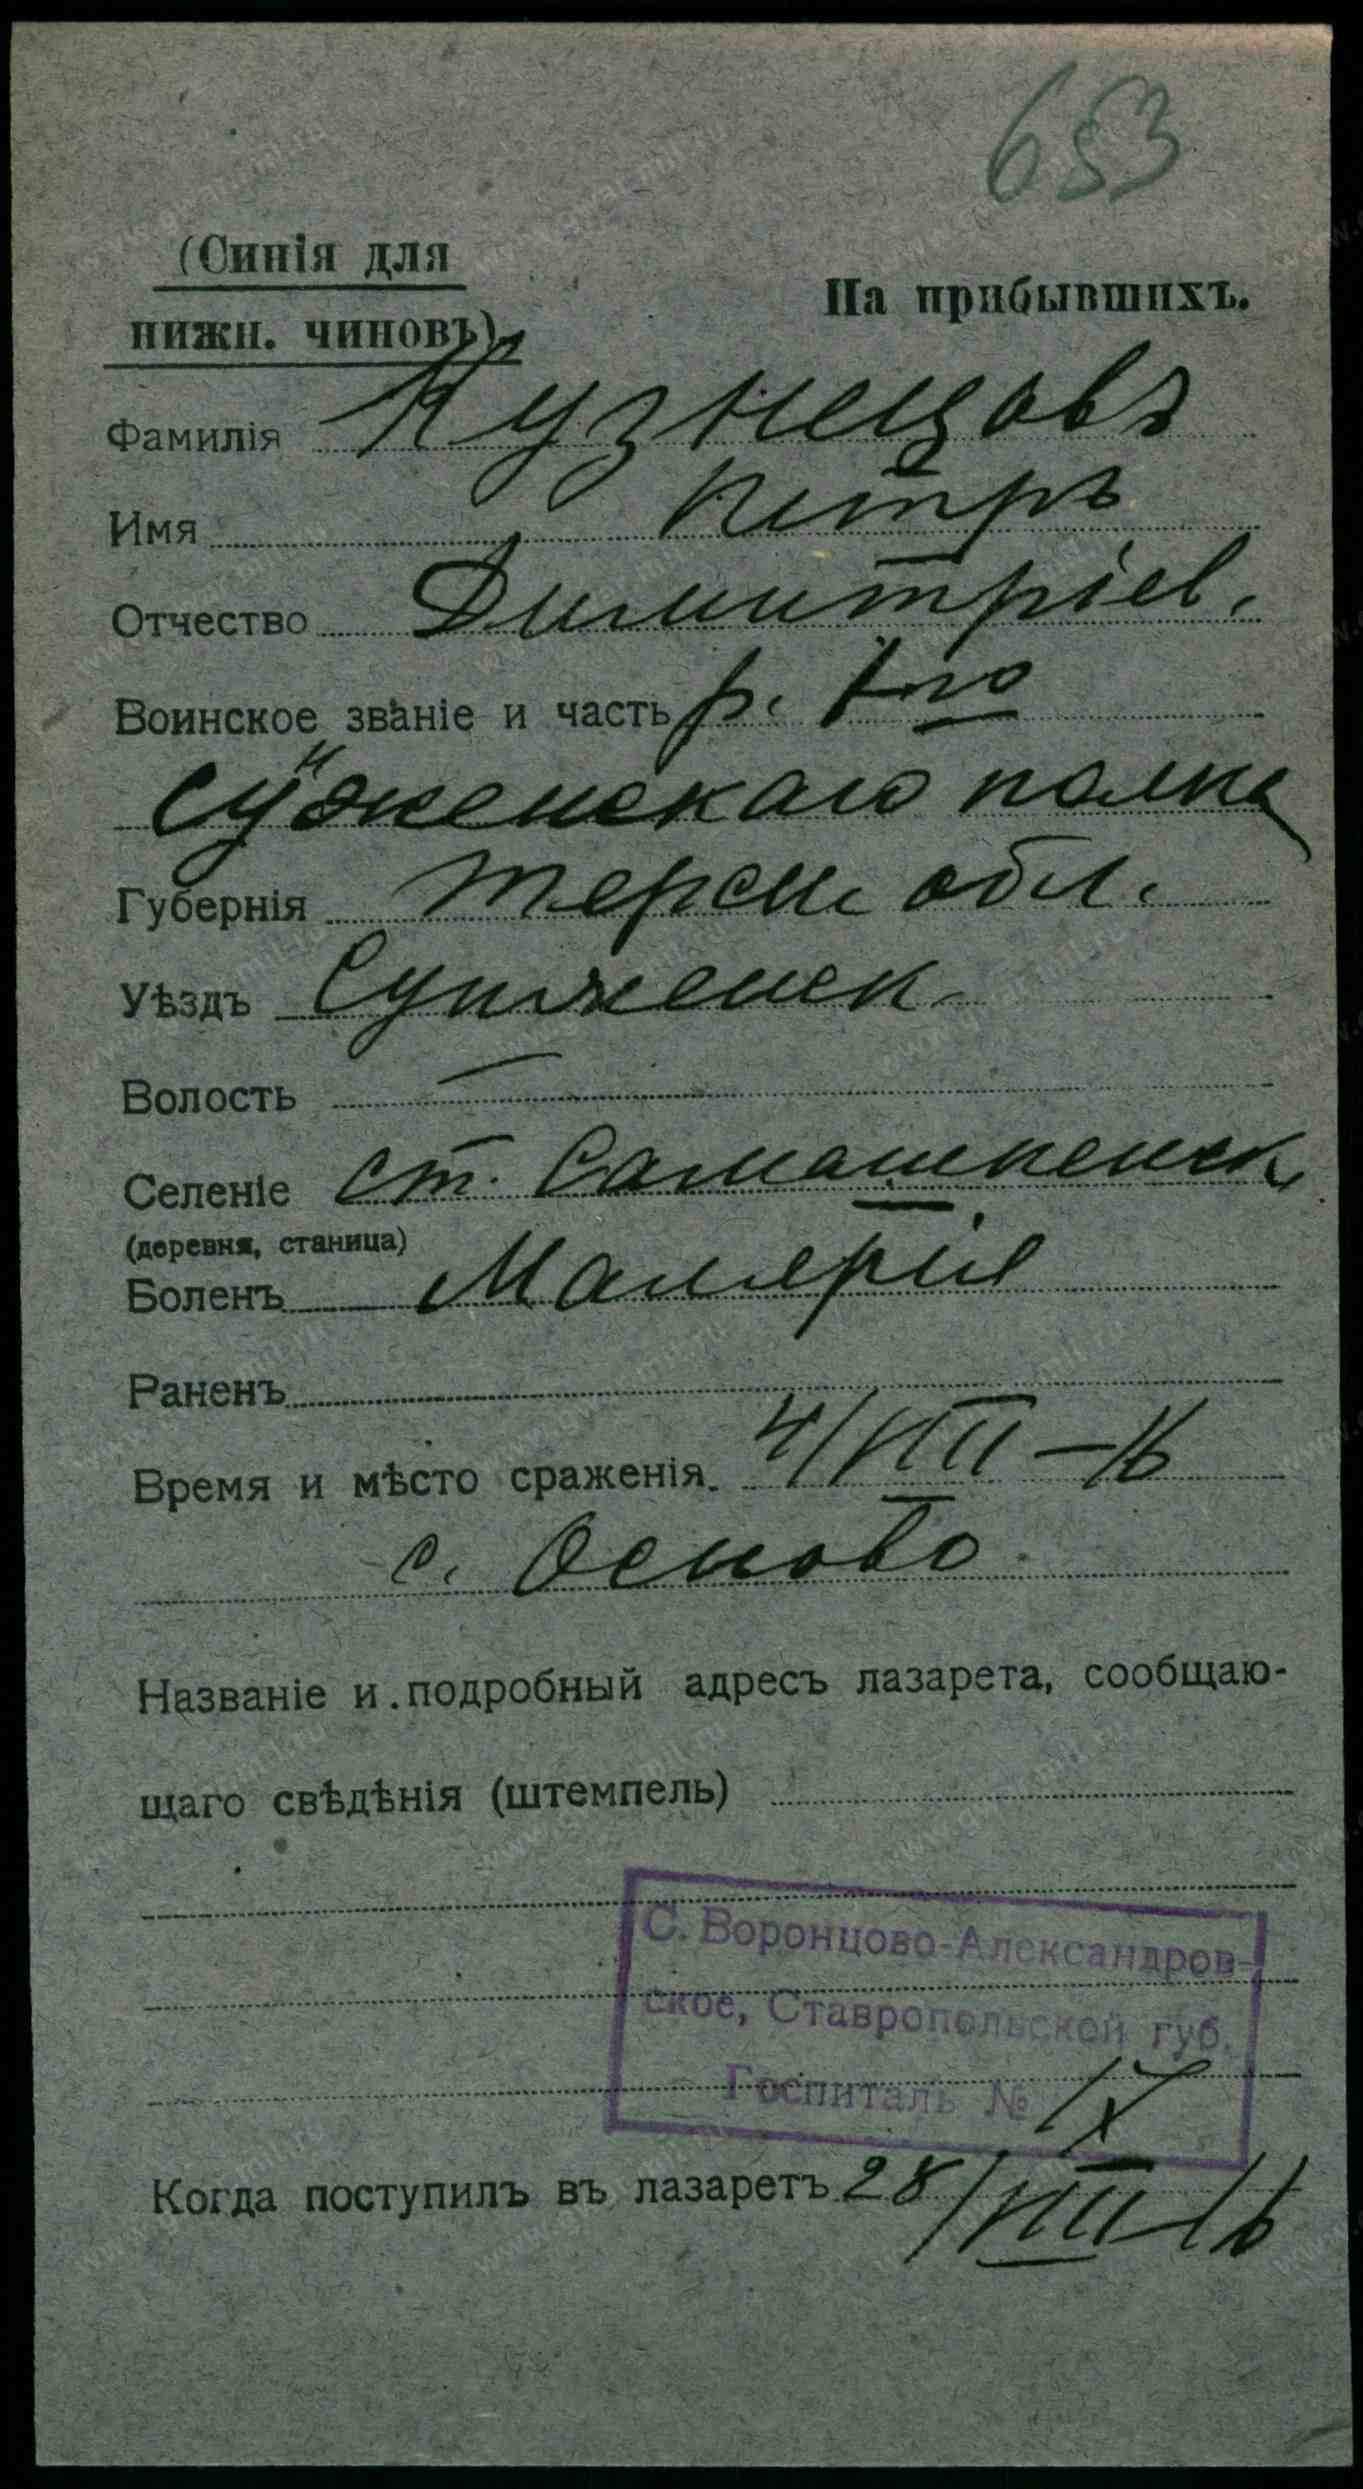 653
(Синія для
нижн. чиновъ)
На прибывшихъ.
Фамилія Кузнецовъ
Имя Петръ
Отчество Димитріев.
Воинское званіе и часть р. 1-го
Сунженскаго полка
Губернія Терск. обл.
Уѣздъ Сунженск.
Волость —
Селеніе ст. Самашкенск.
(деревня, станица)
Боленъ Малярія
Раненъ
Время и мѣсто сраженія. 4/VIII – 16
с. Осново
Названіе и подробный адресъ лазарета, сообщаю-
щаго свѣдѣнія (штемпель)
С. Воронцово-Александров-
ское, Ставропольской губ.
Госпиталь № IX
Когда поступилъ въ лазаретъ 28/VIII-16